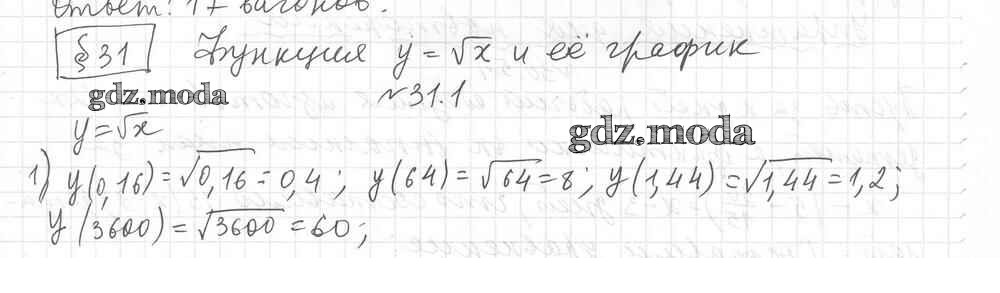 Ответ: 17 вагонов.
§ 31 Функция y = √x и её график
gdz.moda №31.1
y = √x gdz.moda
1) y(0,16) = √0,16 = 0,4; y(64) = √64 = 8; y(1,44) = √1,44 = 1,2;
y(3600) = √3600 = 60;